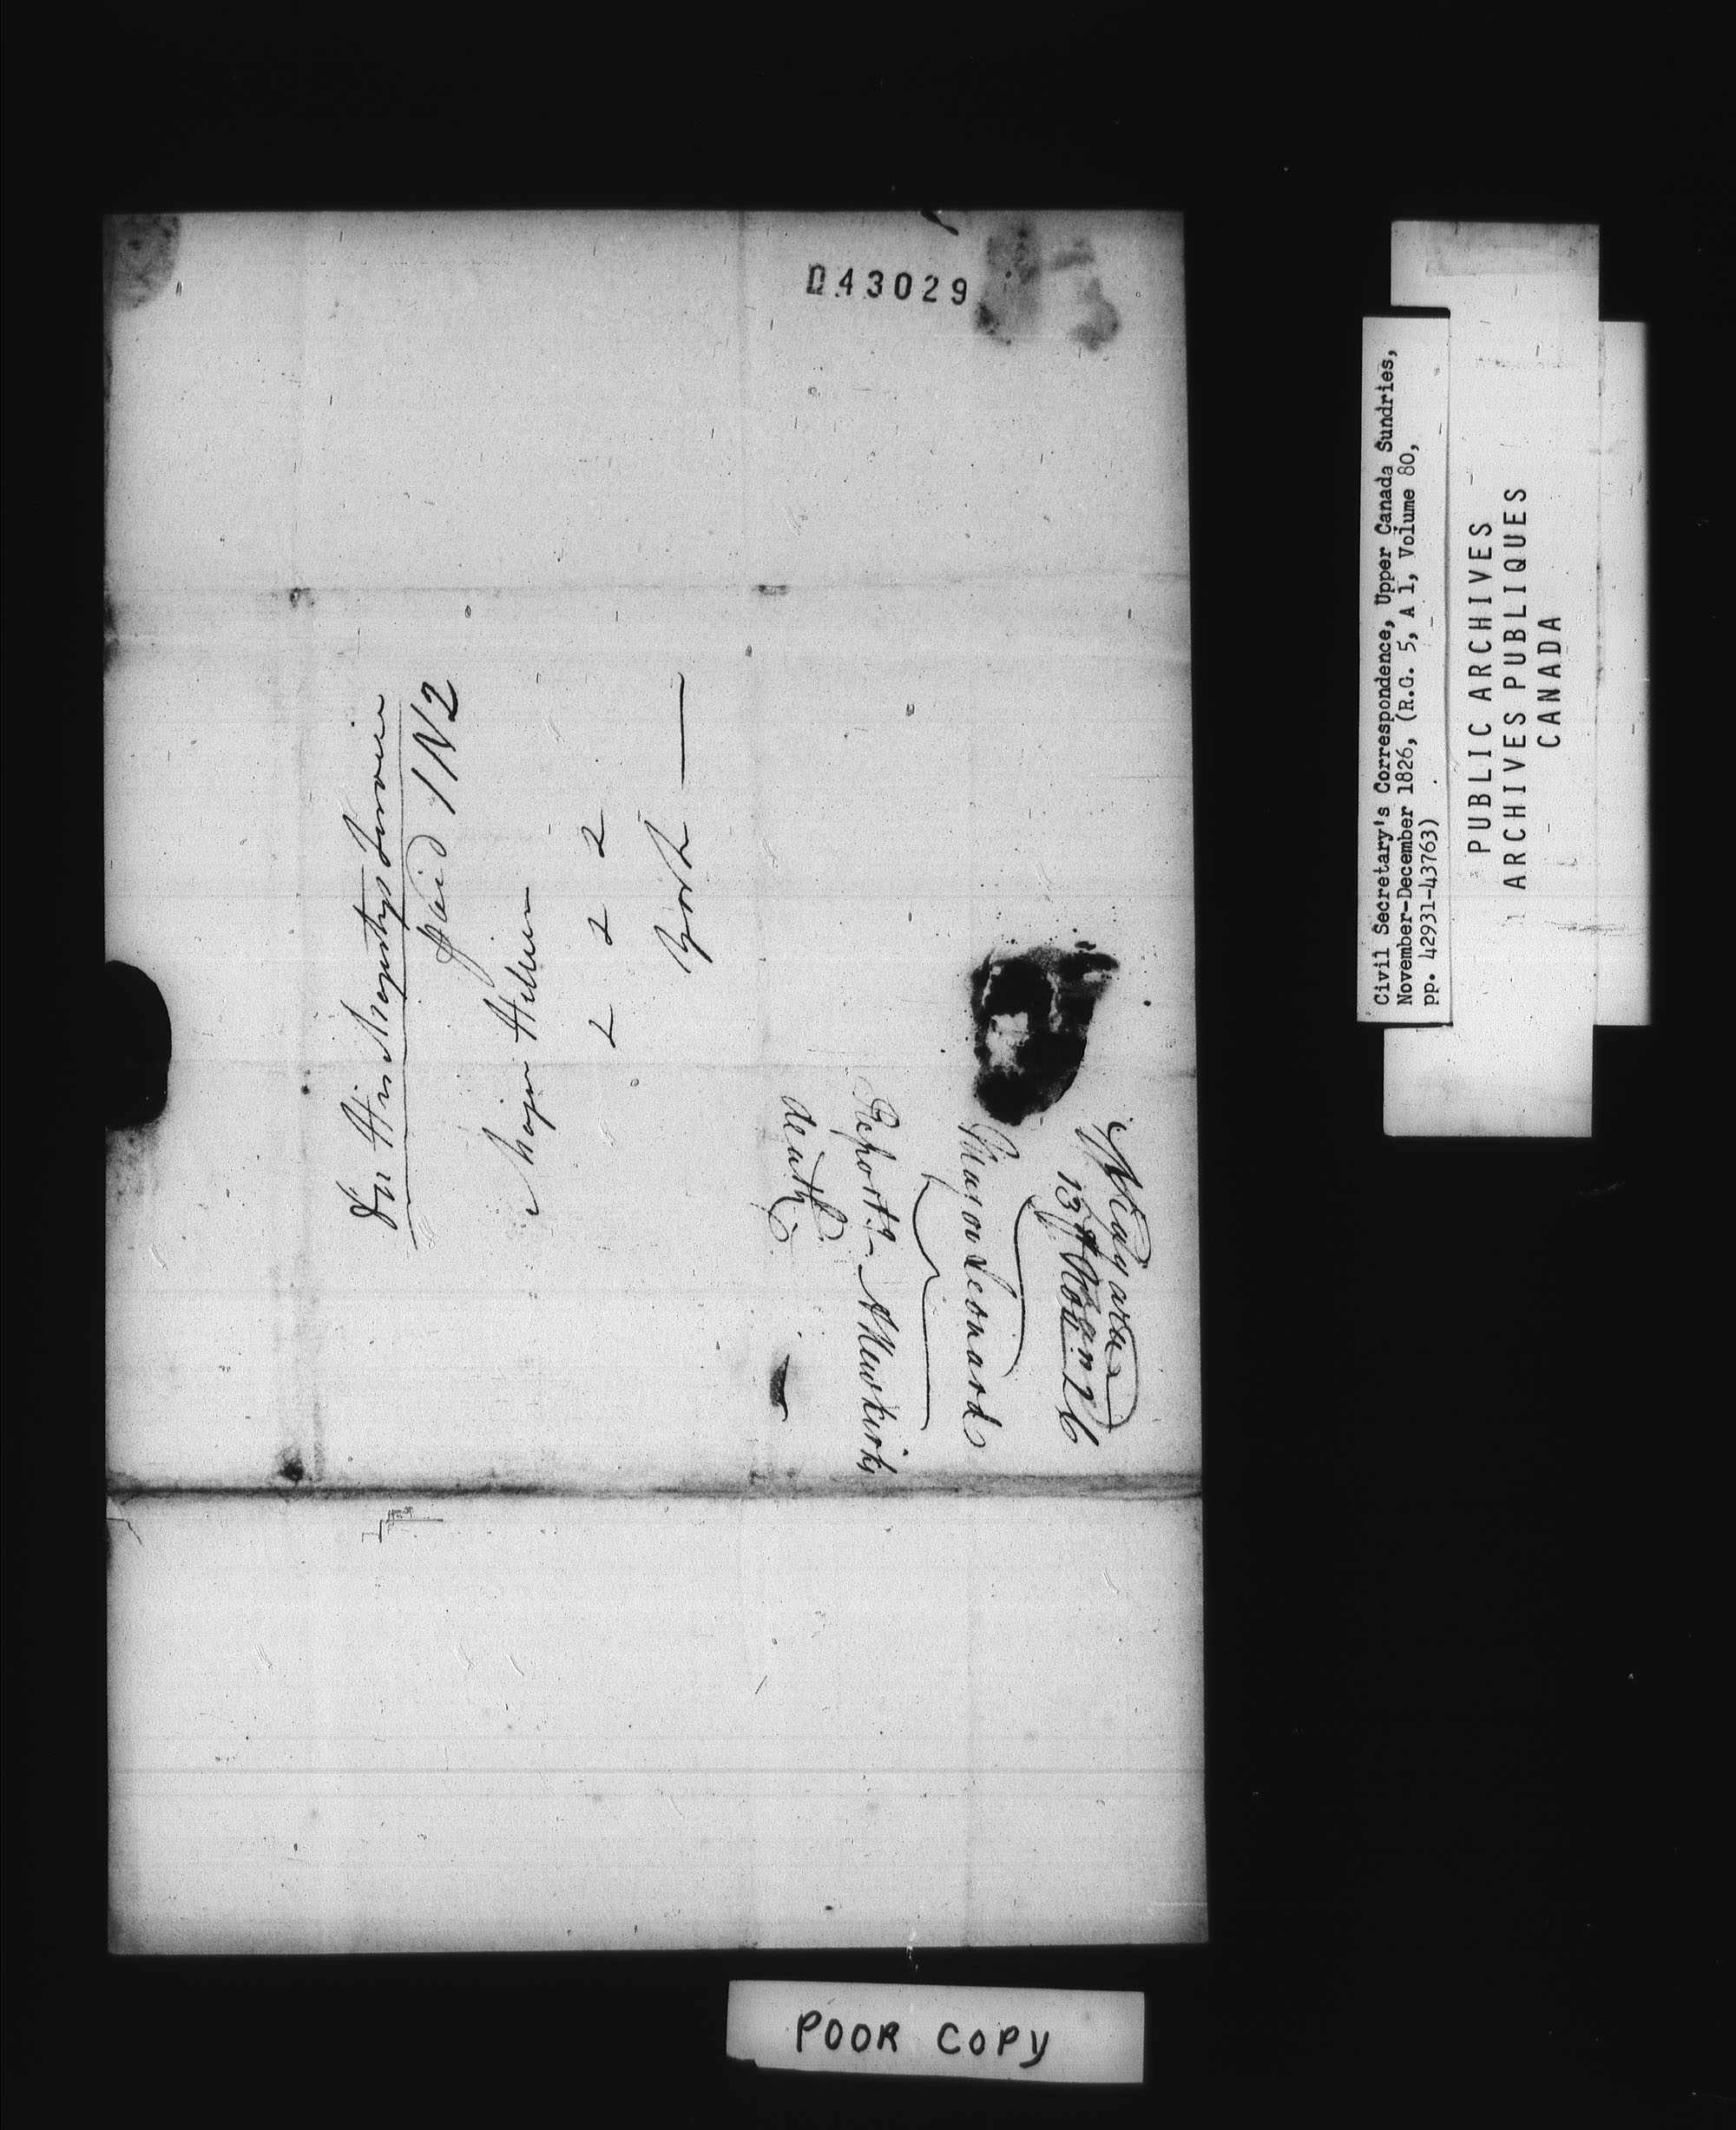 D43029
On His Majestys Service
Paid 1N2
Major Hillier
&c &c &c
York
Niagara
13th Novr. 26
Major Leonard
Report - A Newkirk
death
Civil Secretary's Correspondence, Upper Canada Sundries,
November-December 1826, (R.G. 5, A 1, Volume 80,
pp. 42931-43763)
PUBLIC ARCHIVES
ARCHIVES PUBLIQUES
CANADA
POOR COPY